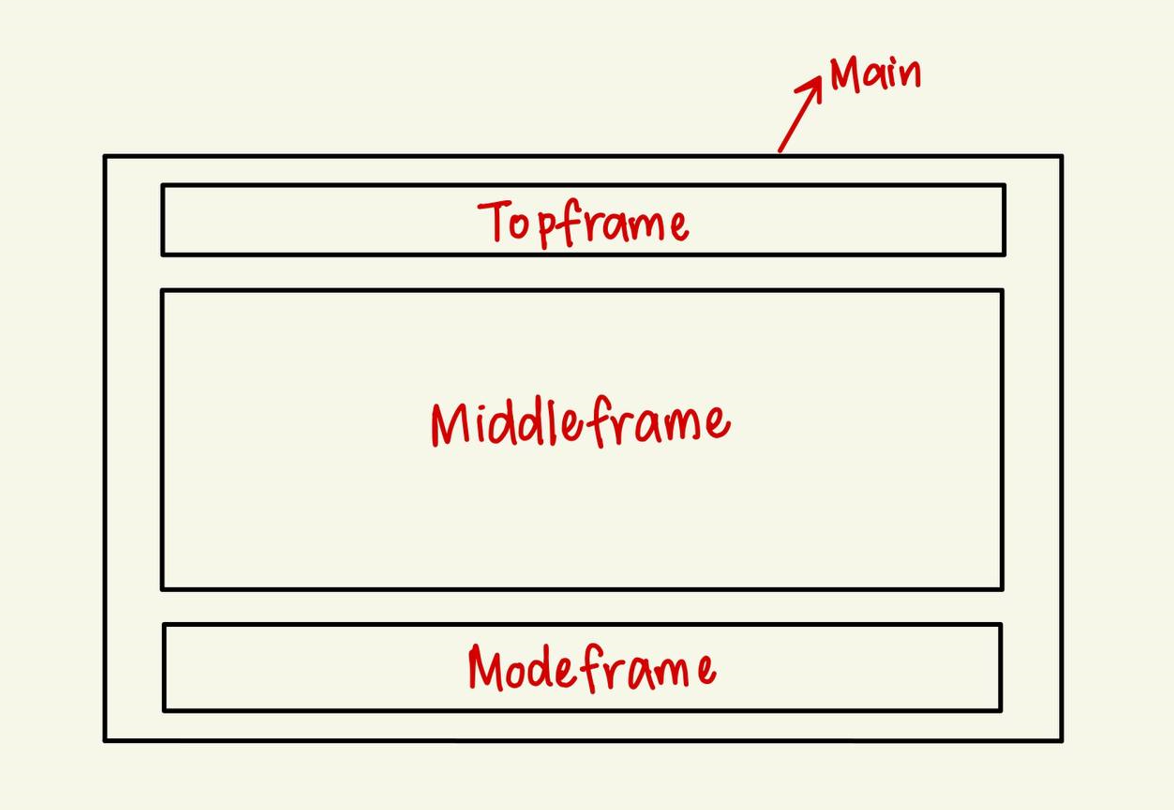 Main
Topframe
Middleframe
Modeframe